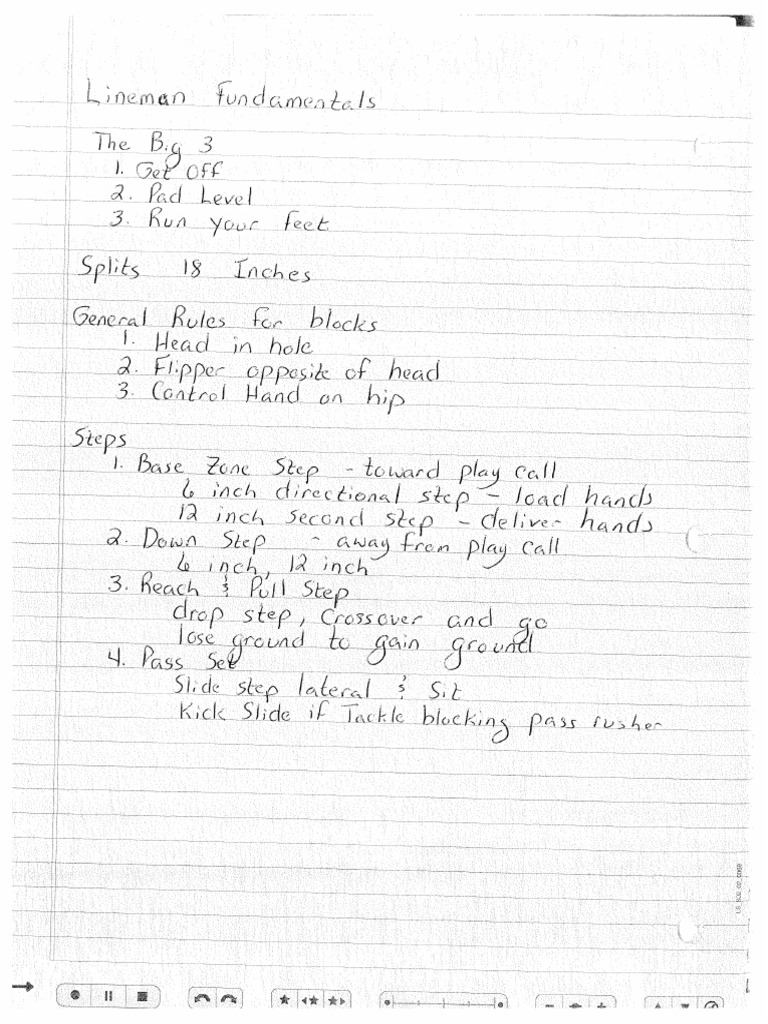 Lineman Fundamentals
The Big 3
1. Get Off
2. Pad Level
3. Run your feet
Splits 18 Inches
General Rules for blocks
1. Head in hole
2. Flipper opposite of head
3. Control Hand on hip
Steps
1. Base Zone Step - toward play call
6 inch directional step - load hands
12 inch second step - deliver hands
2. Down Step - away from play call
6 inch, 12 inch
3. Reach & Pull Step
drop step, crossover and go
lose ground to gain ground
4. Pass Set
Slide step lateral & Sit
Kick Slide if Tackle blocking pass rusher